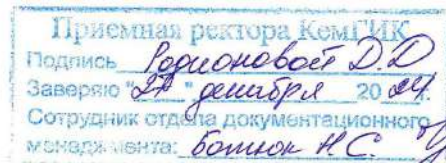 Приемная ректора КемГИК
Подпись Родионовой Д.Д
Заверяю "27" декабря 2024 г.
Сотрудник отдела документационного
менеджмента: Ботнюк Н.С.